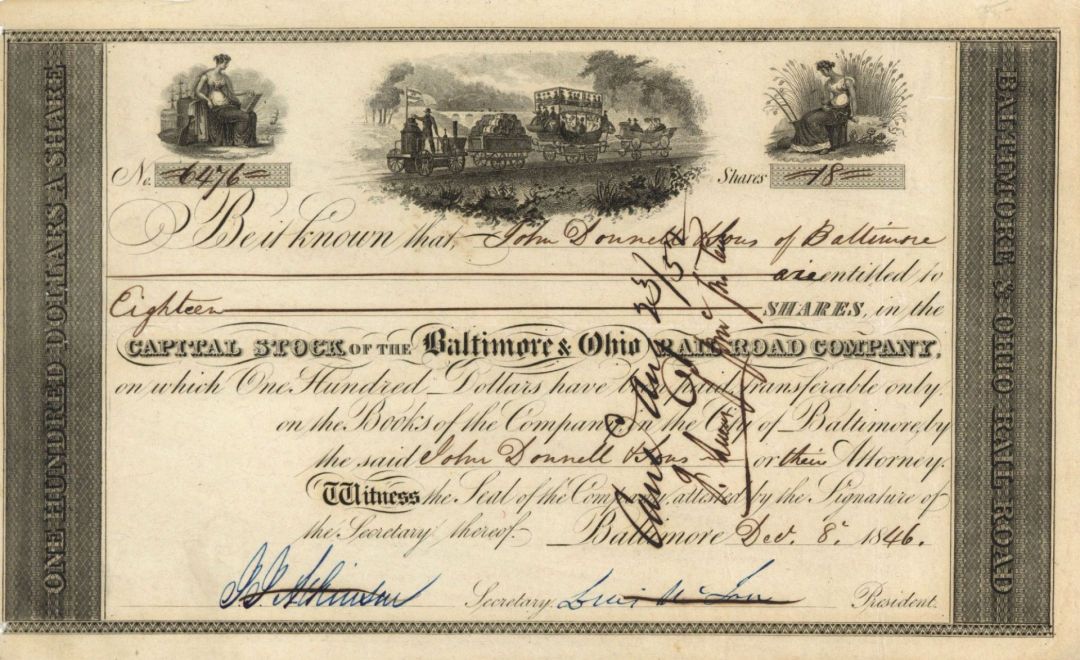 ONE HUNDRED DOLLARS A SHARE
No. 6476
Shares 18
Be it known that John Donnell & Sons of Baltimore
are entitled to
Eighteen SHARES, in the
CAPITAL STOCK OF THE Baltimore & Ohio RAIL ROAD COMPANY,
on which One Hundred Dollars have been paid, transferable only
on the Books of the Company in the City of Baltimore, by
the said John Donnell & Sons or their Attorney.
Witness the Seal of the Company, attested by the Signature of
the Secretary thereof. Baltimore Decr. 8. 1846.
J. J. Atkinson Secretary, Louis McLane President.
BALTIMORE & OHIO RAIL ROAD